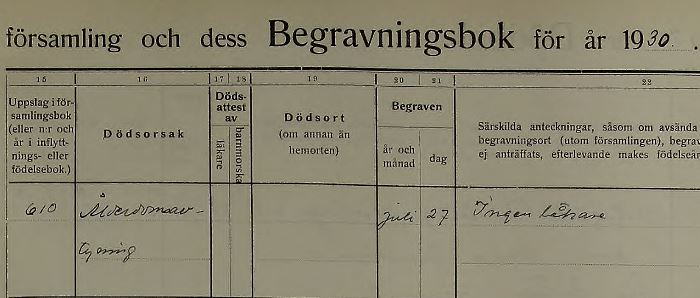 församling och dess Begravningsbok för år 1930.
15 16 17 18 19 20 21 22
Uppslag i för-
samlingsbok
(eller n:r och
år i inflytt-
nings- eller
födelsebok.)
Dödsorsak
Döds-
attest
av
läkare
barnmorska
Dödsort
(om annan än
hemorten)
Begraven
år och
månad
dag
Särskilda anteckningar, såsom om avsända
begravningsort (utom församlingen), begrav
ej anträffats, efterlevande makes födelseår
610 Ålderdomsav-
tyning
juli 27 Ingen läkare